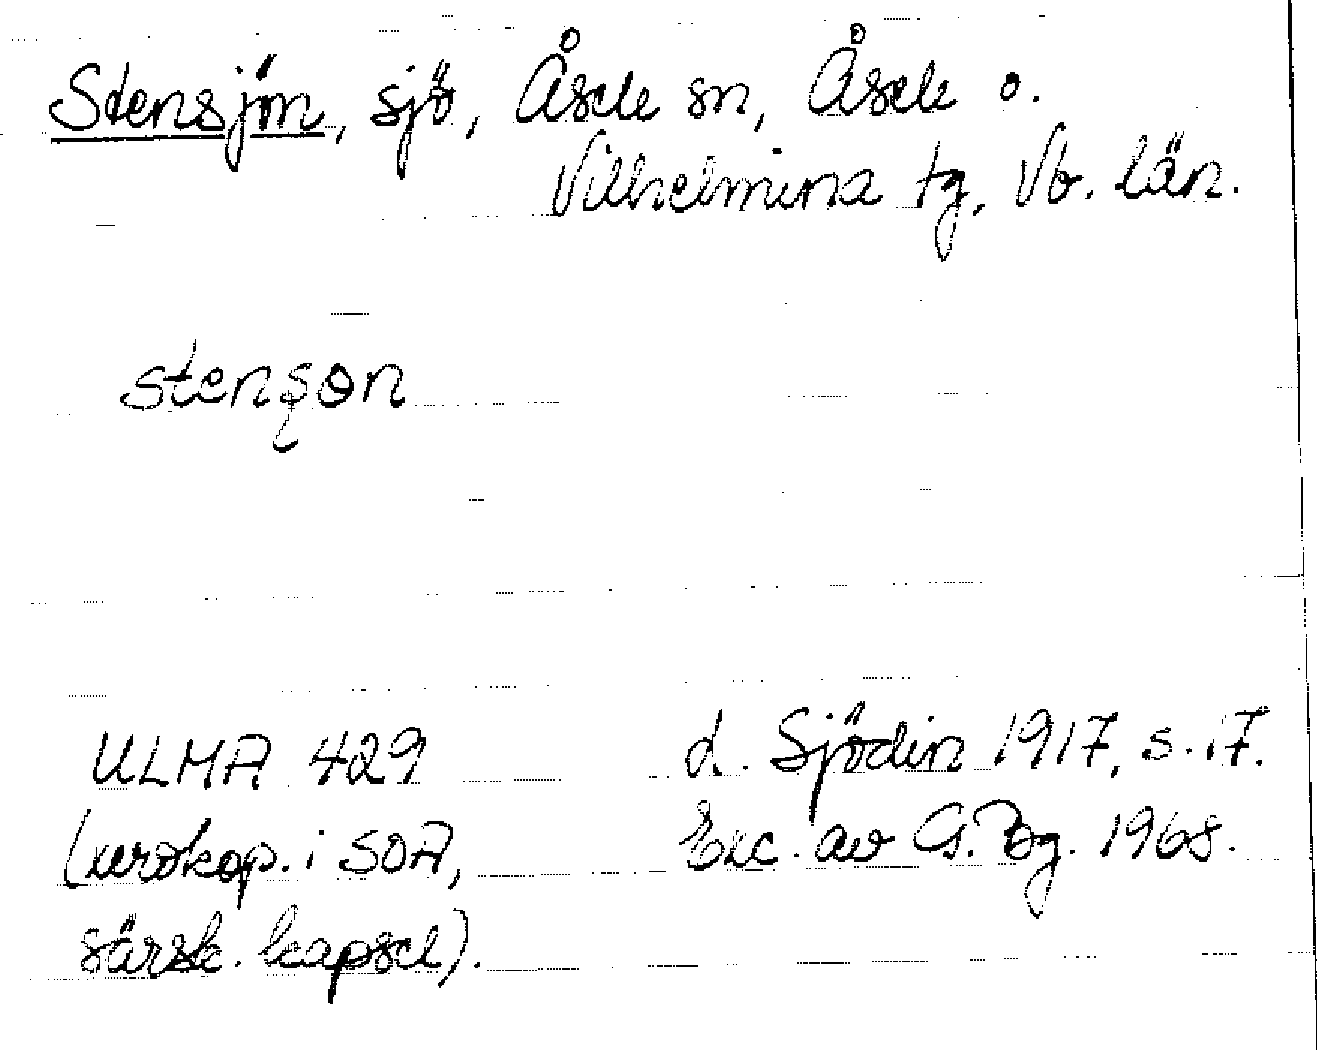 Stensjön, sjö, Åsele sn, Åsele o.
Vilhelmina tg, Vb. län.
stenʂɵn
ULMA 429
(xeroxkop. i SOA,
särsk. kapsel).
L. Sjödin 1917, s. 17.
Exc. av G. Bg. 1968.